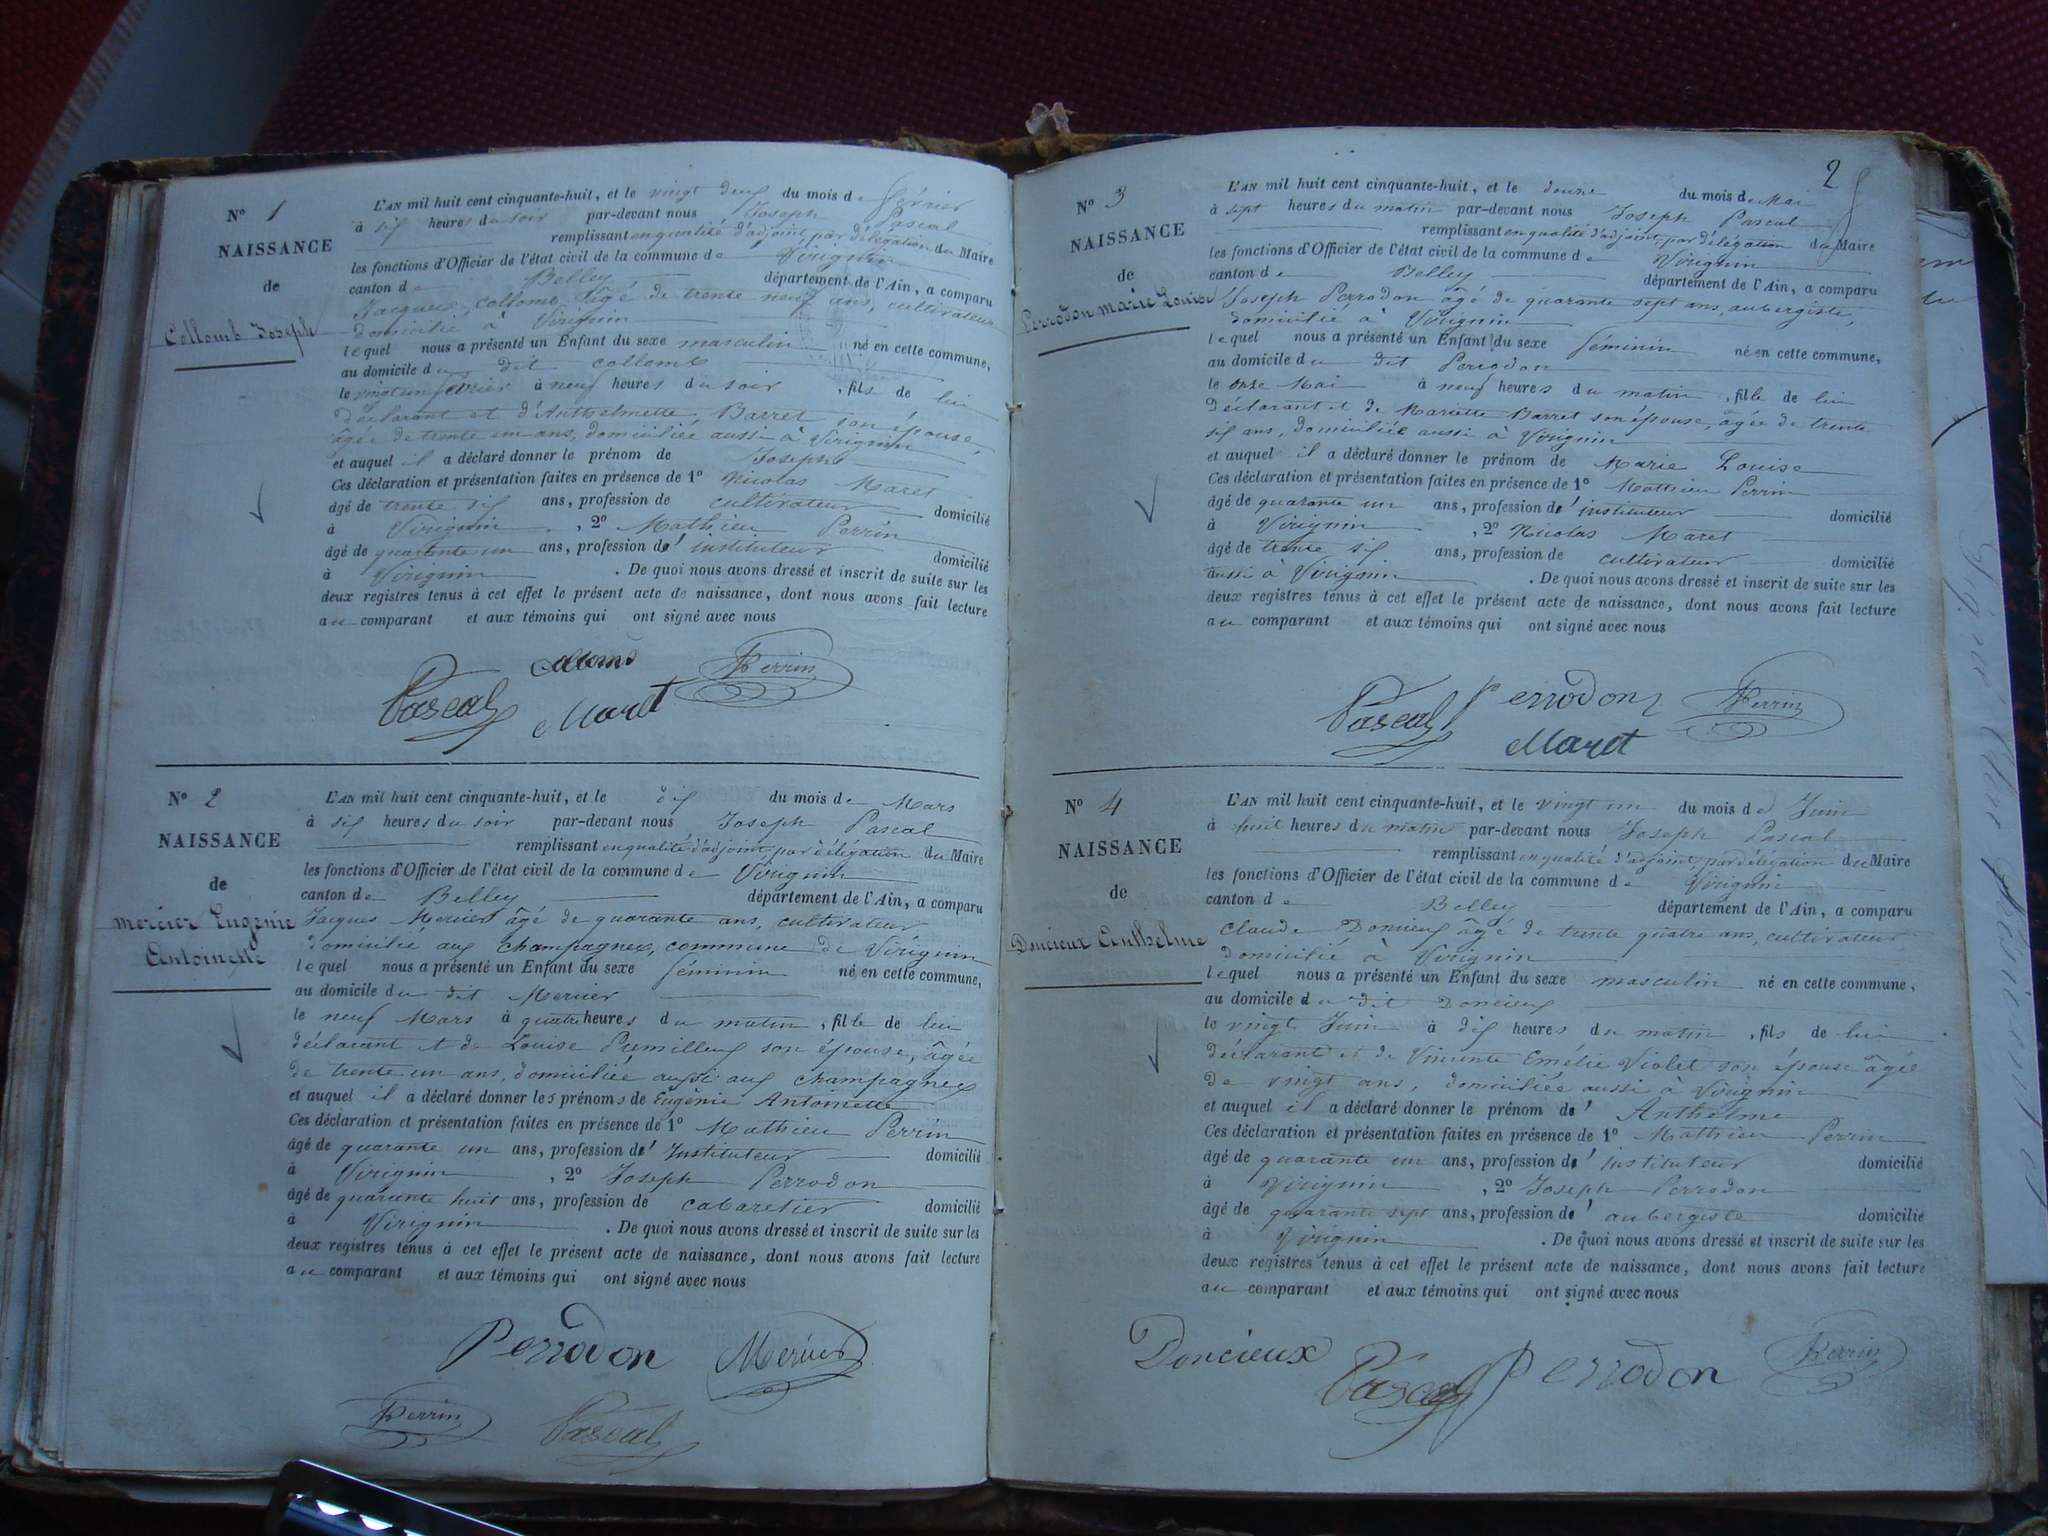 N° 1
NAISSANCE
de
Collomb Joseph
L'AN mil huit cent cinquante-huit, et le vingt deux du mois de février
à six heures du soir par-devant nous Joseph Pascal
remplissant en qualité d'adjoint, par délégation du Maire
les fonctions d'Officier de l'état civil de la commune de Virignin
canton de Belley département de l'Ain, a comparu
Jacques Collomb âgé de trente neuf ans, cultivateur
domicilié à Virignin
lequel nous a présenté un Enfant du sexe masculin né en cette commune,
au domicile du dit Collomb
le vingt un février à neuf heures du soir, fils de lui
déclarant et d'Anthelmette Barret son épouse,
âgée de trente un ans, domiciliée aussi à Virignin
et auquel il a déclaré donner le prénom de Joseph
Ces déclaration et présentation faites en présence de 1° Nicolas Maret
âgé de trente six ans, profession de cultivateur domicilié
à Virignin, 2° Mathieu Perrin
âgé de quarante un ans, profession d' instituteur domicilié
à Virignin. De quoi nous avons dressé et inscrit de suite sur les
deux registres tenus à cet effet le présent acte de naissance, dont nous avons fait lecture
au comparant et aux témoins qui ont signé avec nous
Collomb Perrin
Pascal Maret
N° 2
NAISSANCE
de
Mercier Eugénie
Antoinette
L'AN mil huit cent cinquante-huit, et le dix du mois de Mars
à six heures du soir par-devant nous Joseph Pascal
remplissant en qualité d'adjoint, par délégation du Maire
les fonctions d'Officier de l'état civil de la commune de Virignin
canton de Belley département de l'Ain, a comparu
Jacques Mercier âgé de quarante ans, cultivateur
domicilié aux Champagnes, commune de Virignin
lequel nous a présenté un Enfant du sexe féminin né en cette commune,
au domicile du dit Mercier
le neuf Mars à quatre heures du matin, fille de lui
déclarant et de Louise Pumilleux son épouse, âgée
de trente un ans, domiciliée aussi aux Champagnes
et auquel il a déclaré donner les prénoms de Eugénie Antoinette
Ces déclaration et présentation faites en présence de 1° Mathieu Perrin
âgé de quarante un ans, profession d' Instituteur domicilié
à Virignin, 2° Joseph Perrodon
âgé de quarante huit ans, profession de cabaretier domicilié
à Virignin. De quoi nous avons dressé et inscrit de suite sur les
deux registres tenus à cet effet le présent acte de naissance, dont nous avons fait lecture
au comparant et aux témoins qui ont signé avec nous
Perrodon Mercier
Perrin Pascal
2
N° 3
NAISSANCE
de
Perrodon Marie Louise
L'AN mil huit cent cinquante-huit, et le douze du mois de Mai
à sept heures du matin par-devant nous Joseph Pascal
remplissant en qualité d'adjoint, par délégation du Maire
les fonctions d'Officier de l'état civil de la commune de Virignin
canton de Belley département de l'Ain, a comparu
Joseph Perrodon âgé de quarante sept ans, aubergiste,
domicilié à Virignin
lequel nous a présenté un Enfant du sexe féminin né en cette commune,
au domicile du dit Perrodon
le onze Mai à neuf heures du matin, fille de lui
déclarant et de Mariette Barret son épouse, âgée de trente
six ans, domiciliée aussi à Virignin
et auquel il a déclaré donner le prénom de Marie Louise
Ces déclaration et présentation faites en présence de 1° Mathieu Perrin
âgé de quarante un ans, profession d' instituteur domicilié
à Virignin, 2° Nicolas Maret
âgé de trente six ans, profession de cultivateur domicilié
aussi à Virignin. De quoi nous avons dressé et inscrit de suite sur les
deux registres tenus à cet effet le présent acte de naissance, dont nous avons fait lecture
au comparant et aux témoins qui ont signé avec nous
Pascal Perrodon Perrin
Maret
N° 4
NAISSANCE
de
Doncieux Anthelme
L'AN mil huit cent cinquante-huit, et le vingt un du mois de Juin
à huit heures du matin par-devant nous Joseph Pascal
remplissant en qualité d'adjoint, par délégation du Maire
les fonctions d'Officier de l'état civil de la commune de Virignin
canton de Belley département de l'Ain, a comparu
Claude Doncieux âgé de trente quatre ans, cultivateur
domicilié à Virignin
lequel nous a présenté un Enfant du sexe masculin né en cette commune,
au domicile du dit Doncieux
le vingt Juin à dix heures du matin, fils de lui
déclarant et de Vincente Emélie Violet son épouse âgée
de vingt ans, domiciliée aussi à Virignin
et auquel il a déclaré donner le prénom d' Anthelme
Ces déclaration et présentation faites en présence de 1° Mathieu Perrin
âgé de quarante un ans, profession d' instituteur domicilié
à Virignin, 2° Joseph Perrodon
âgé de quarante sept ans, profession d' aubergiste domicilié
à Virignin. De quoi nous avons dressé et inscrit de suite sur les
deux registres tenus à cet effet le présent acte de naissance, dont nous avons fait lecture
au comparant et aux témoins qui ont signé avec nous
Doncieux Pascal Perrodon Perrin